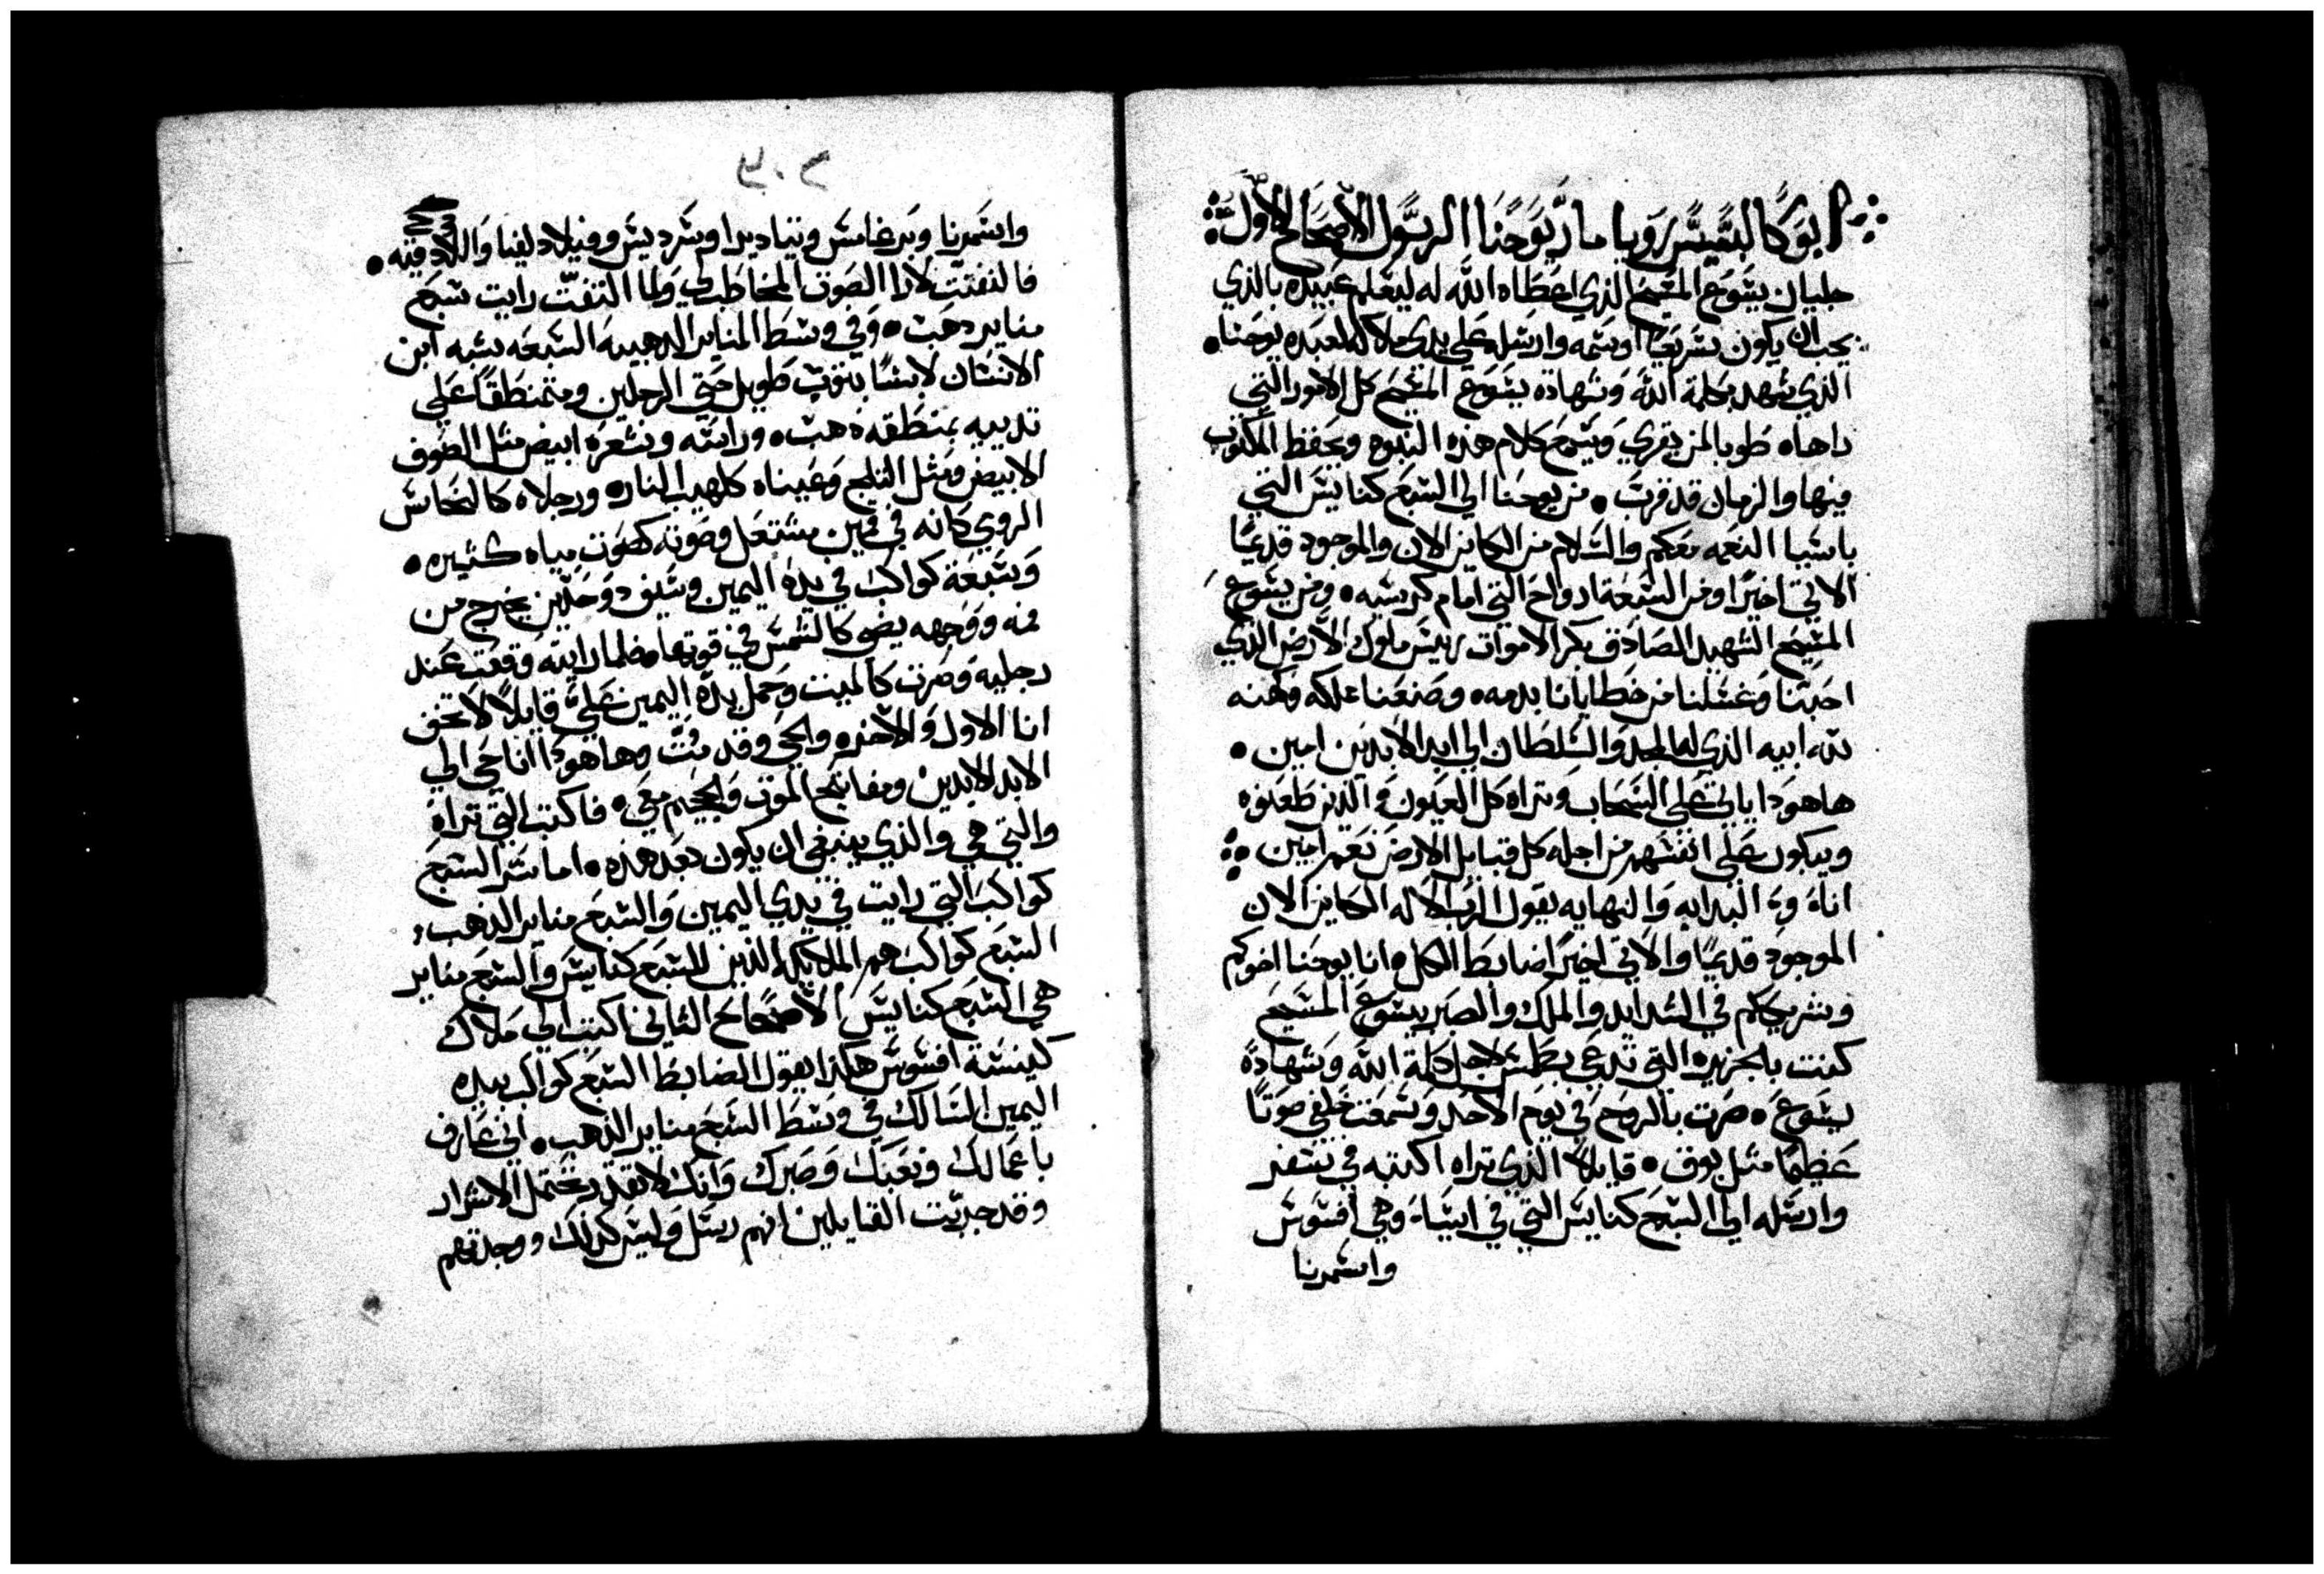 ابوكالبسيس رويا ماري يوحنا الرسول الاصحاح الاول
جليان يسوع المسيح الذي اعطاه الله له ليعلم عبيده بالذي
يجب ان يكون سريعًا اوسمه وارسله علي يدي ملاكه لعبده يوحنا
الذي شهد بكلمة الله وشهادة يسوع المسيح كل الامور التي
راها طوبا لمن يقري ويسمع كلام هذه النبوه ويحفظ المكتوب
فيها والزمان قد قرب من يوحنا الي السبع كنايس التي
باسيا النعمه معكم والسلام من الكاين الان والموجود قديمًا
الاتي اخيرًا ومن السبعة ارواح التي امام كرسيه ومن يسوع
المسيح الشهيد الصادق بكر الاموات رييس ملوك الارض الذي
احبنا وغسلنا من خطايانا بدمه وصنعنا مملكه وكهنه
لله ابيه الذي له المجد والسلطان الي ابد الابدين امين
هاهودا ياتي علي السحاب وتراه كل العيون والذين طعنوه
ويبكون علي انفسهم من اجله كل قبايل الارض نعم امين
انا البدايه والنهايه يقول الرب الاله الكاين الان
الموجود قديمًا والاتي اخيرًا ضابط الكل انا يوحنا اخوكم
وشريككم في الشدايد والملك والصبر بيسوع المسيح
كنت بالجزيره التي تدعي بطمس لاجل كلمة الله وشهادة
يسوع صرت بالروح في يوم الاحد وسمعت خلفي صوتًا
عظيمًا مثل بوق قايلاً الذي تراه اكتبه في سفر
وارسله الي السبع كنايس التي في اسيا وهي افسوس
واسمرنا
٢٠٤
واسمرنا وبرغامس وتياديرا وسرديس وفيلادلفيا واللادقيه
فالتفتت لارا الصوت المخاطب لي ولما التفتّ رايت سبع
مناير دهب وفي وسط المناير الدهبيه السبعه يشبه ابن
الانسان لابسًا بتوب طويل حتي الرجلين ومتمنطقًا علي
تدييه بمنطقه دهب وراسه وشعره ابيض مثل الصوف
الابيض ومثل التلج وعيناه كلهيب النار ورجلاه كالنحاس
الرومي كانه في قمين مشتعل وصوته كصوت مياه كثيره
وسبعة كواكب في يده اليمين وسيف دو حدين يخرج من
فمه ووجهه يضي كالشمس في قوتها فلما رايته وقعت عند
رجليه وصرت كالميت وحمل يده اليمين علي قايلاً لا تخف
انا الاول والاخر والحي وقد متّ وهاهودا انا حي الي
ابد الابدين ومفاتيح الموت والجحيم معي فاكتب التي تراه
والتي هي والذي ينبغي ان يكون بعد هذه اما سر السبع
كواكب التي رايت في يدي اليمين والسبع مناير الذهب
السبع كواكب هم الملايكه الذين للسبع كنايس والسبع مناير
هي السبع كنايس الاصحاح الثاني اكتب الي ملاك
كنيسة افسوس هكذا يقول الضابط السبع كواكب بيده
اليمين السالك في وسط السبع مناير الذهب اني عارف
باعمالك وتعبك وصبرك وانك لا تقدر تحتمل الاشرار
وقد جربت القايلين انهم رسل وليس كذلك ووجدتهم